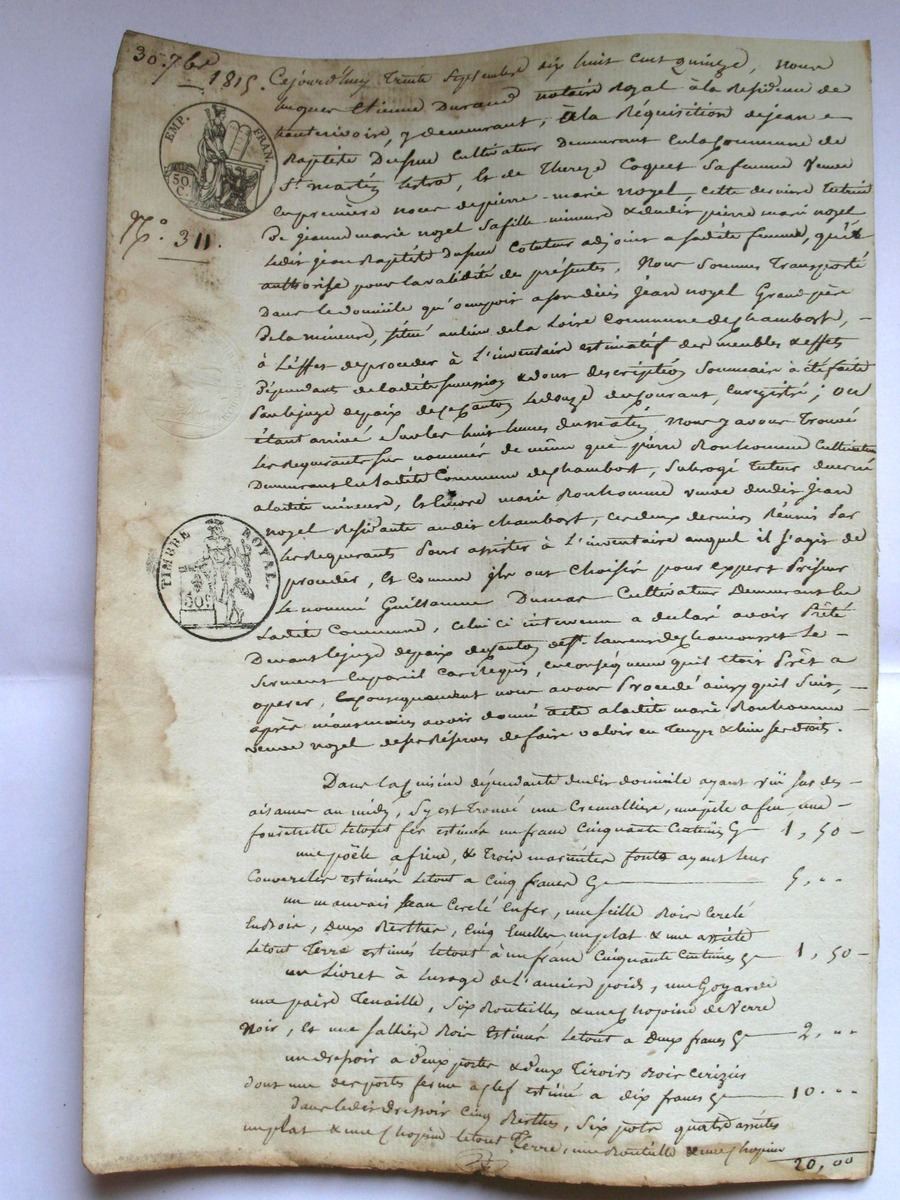 30. 7bre
1815.
EMP. FRAN.
50 C.
N.° 311.
TIMBRE ROYAL
50
Cejourd'huy Trente Septembre dix huit cent quinze, Nous
Etienne Durand notaire Royal à la Residence de
hauterivoire, y demeurant, à la Réquisition de jean
Baptiste Cultivateur Demeurant en la Commune de
St. martin lestra, Et de Thereze Coquet Safemme Veuve
en premiere noces de pierre-marie noyel cette derniere Tutrice
De jeanne marie noyel Safille mineure & dudit pierre marie noyel
Ledit jean Baptiste Cotuteur adjoint a sadite femme, qu'il
authorise pour la validité de présentes, Nous Sommes Transporté
Dans le domicile qu'occupoit a son décès jean noyel Grand père
de la mineure, situé au lieu de la Loire Commune de chambost, -
à L'effet de proceder à L'inventaire estimatif des meubles & effets
Dépendants de ladite succession & dont description Sommaire à été faite
Par le juge de paix de ce Canton le douze du courant, Enregistré; ou
étant arrivé Sur les huit heures du matin, Nous y avons Trouvé
les Requérants sus nommés de même que pierre Bonhomme Cultivateur
Demeurant en ladite Commune de chambost, Subrogé Tuteur
a ladite mineure, Et Encore marie Bonhomme veuve dudit jean
noyel Residante audit chambost, ces deux derniers Réunis par
les Requerants Pour assister à L'inventaire auquel il s'agit de
proceder, Et comme ils ont Choisis pour expert Priseur
Le nommé Guillaume Dumas Cultivateur Demeurant En
Ladite Commune, Celui ci intervenu a declaré avoir Prêté
Devant le juge de paix du Canton de St. laurent de chamousset le -
Serment En pareil Cas Requis, en conséquence qu'il étoit Prêt a
operer, Conséquemment nous avons Procedé ainsy qu'il Suit, -
après néanmoins avoir donné acte a ladite marie Bonhomme -
veuve noyel de ses Réserves de faire valoir en Temps & lieu ses droits.
Dans la Cuisine dépendante dudit domicile ayant vüe sur des -
aisances au midy, S'y est Trouvé une Cremalliere, une pèle a feu, une -
fourchette letout fer estimés un franc Cinquante Centimes Cy — 1, 50 -
une poële a frire, & Trois marmites fonte ayant leur
Couvercles estimés Letout a Cinq francs Cy — 5, "
un mauvais seau Cerclé Enfer, une seille Bois Cerclé
En Bois, Deux Berthes, Cinq Ecuelles un plat & une assiète
Letout Terre estimés letout à un franc Cinquante Centimes Cy — 1, 50 -
un Livret à Lusage de l'ancien poids, une Goyarde
une paire Tenaille, Six Bouteilles & une Chopine de Verre
Noir, Et une Sallière Bois Estimés Letout a Deux francs Cy — 2, "
un dressoir a Deux portes & Deux Tiroirs Bois Cerizier
dont une des portes ferme a clef estimé a dix francs Cy — 10 "
Dans ledit dressoir Cinq Berthes, Six pots quatre assiétes
un plat & une Chopine letout Terre, une Bouteille & une Chopine
20, 00